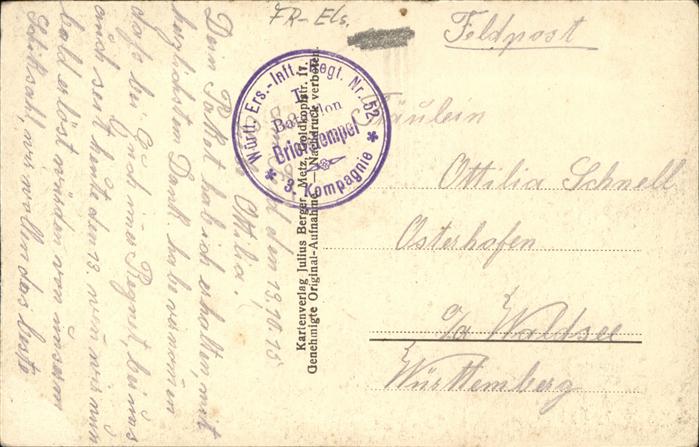 FR-Els.
Feldpost
Fräulein
Ottilia Schnell
Osterhofen
Waldsee
Württemberg
Württ. Ers.-Inft.-Regt. Nr. 52
I.
Bataillon
Briefstempel
* 3. Kompagnie *
Kartenverlag Julius Berger, Metz, Goldkopfstr. 17.
Genehmigte Original-Aufnahme. — Nachdruck verboten.
den 13.10.15
Ottilia!
Dein Paket hab ich erhalten, mit
herzlichstem Dank habe vernommen
daß bei Euch ins Regnet, bei uns
auch seit heute den 13. wenn wir nun
bald erlöst würden von unserm
Schicksahl, wir wollen das beste